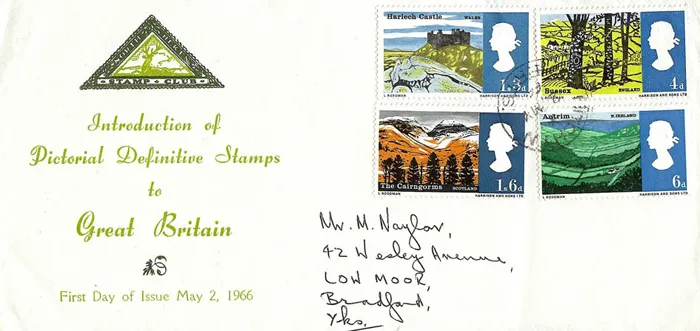 STAMP CLUB
Introduction of
Pictorial Definitive Stamps
to
Great Britain
First Day of Issue May 2, 1966
Harlech Castle WALES
1s.3d
L ROSOMAN HARRISON AND SONS LTD
Sussex ENGLAND
4d
L ROSOMAN HARRISON AND SONS LTD
The Cairngorms SCOTLAND
1s6d
L ROSOMAN HARRISON AND SONS LTD
Antrim N. IRELAND
6d
L ROSOMAN HARRISON AND SONS LTD
Mr. M. Naylor,
42 Wesley Avenue,
LOW MOOR,
Bradford,
Yks.